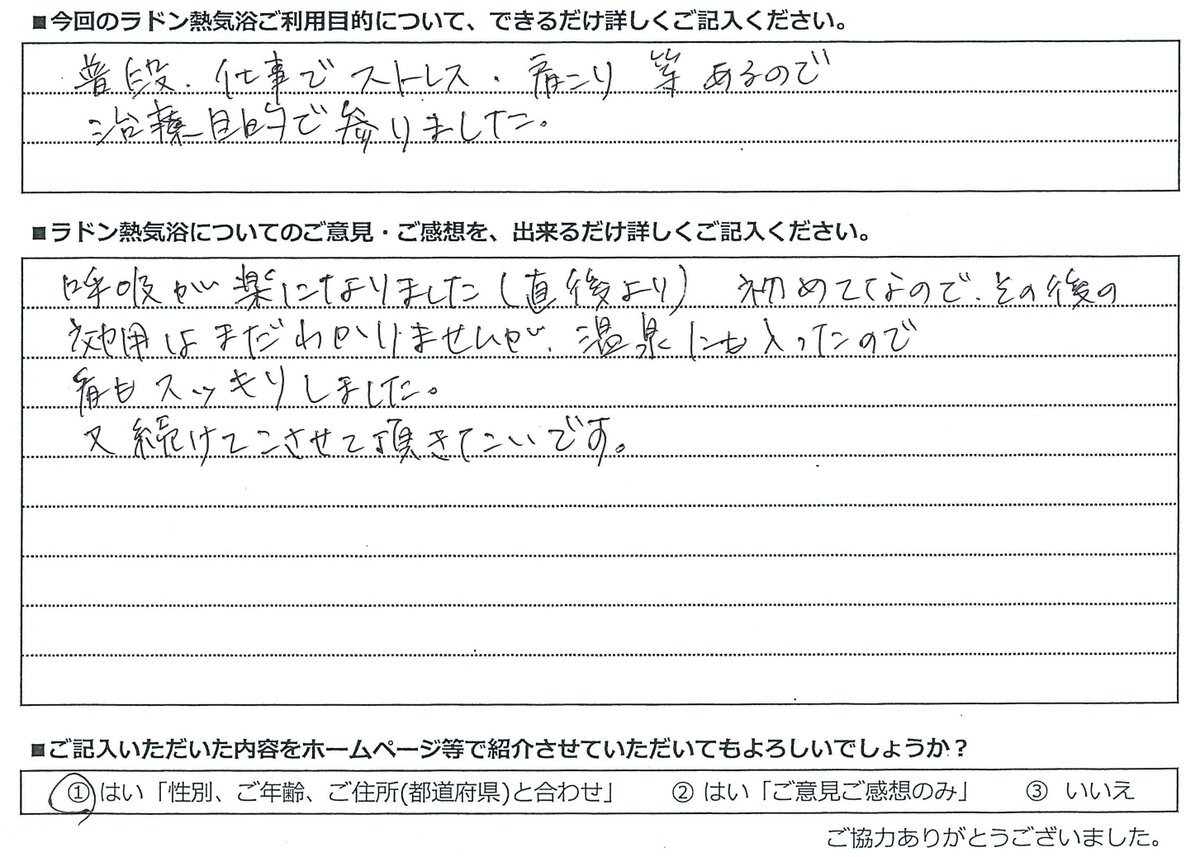 ■今回のラドン熱気浴ご利用目的について、できるだけ詳しくご記入ください。
普段、仕事でストレス・肩こり 等あるので
治療目的で参りました。
■ラドン熱気浴についてのご意見・ご感想を、出来るだけ詳しくご記入ください。
呼吸が楽になりました(直後より) 初めてなので、その後の
効用はまだわかりませんが、温泉にも入ったので
肩もスッキリしました。
又続けてこさせて頂きたいです。
■ご記入いただいた内容をホームページ等で紹介させていただいてもよろしいでしょうか？
① はい「性別、ご年齢、ご住所(都道府県)と合わせ」 ② はい「ご意見ご感想のみ」 ③ いいえ
ご協力ありがとうございました。